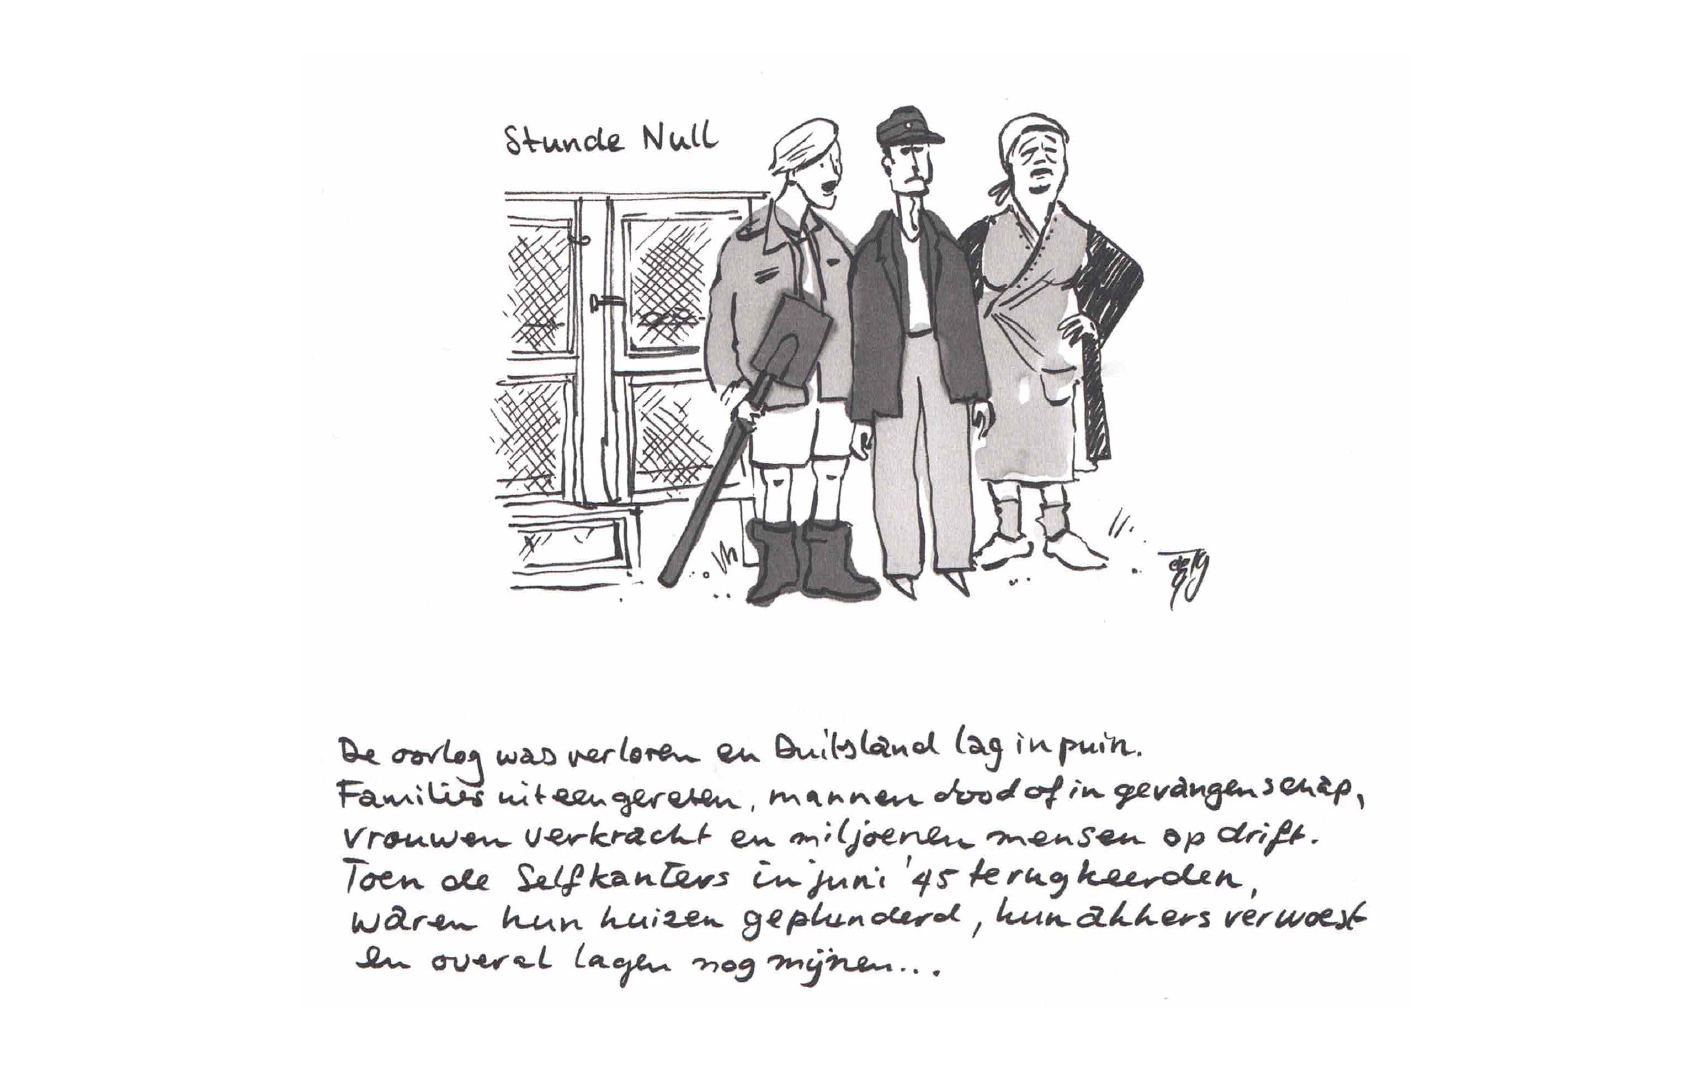 Stunde Null
De oorlog was verloren en Duitsland lag in puin.
Families uiteengereten, mannen dood of in gevangenschap,
vrouwen verkracht en miljoenen mensen op drift.
Toen de Selfkanters in juni '45 terugkeerden,
waren hun huizen geplunderd, hun akkers verwoest
en overal lagen nog mijnen...